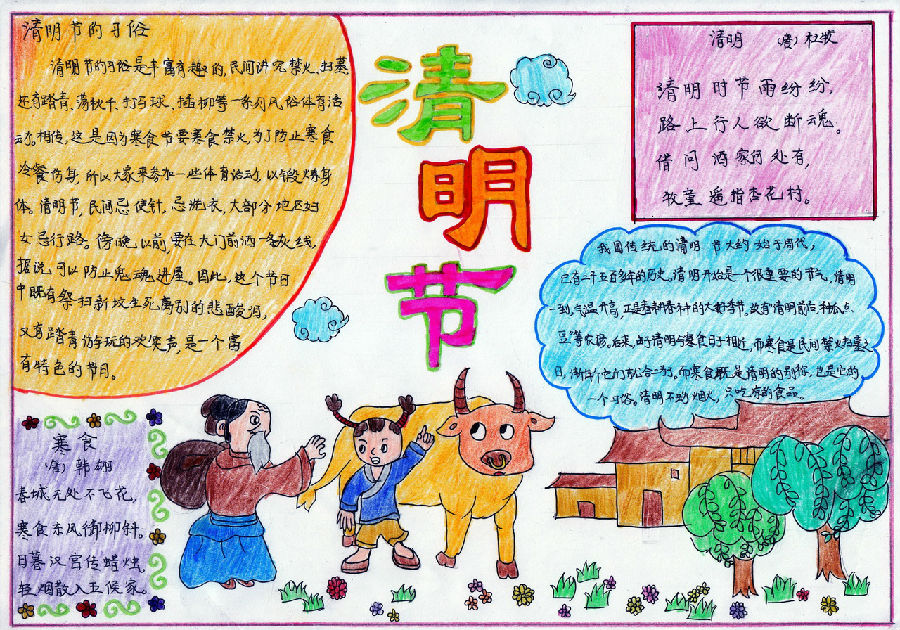 清明节的习俗
清明节的习俗是丰富有趣的,民间讲究禁火、扫墓,
还有踏青、荡秋千、打马球、插柳等一系列风俗体育活
动。相传,这是因为寒食节要寒食禁火,为了防止寒食
冷餐伤身,所以大家来参加一些体育活动,以锻炼身
体。清明节,民间忌使针,忌洗衣,大部分地区妇
女忌行路。傍晚以前,要在大门前洒一条灰线,
据说可以防止鬼魂进屋。因此,这个节日
中既有祭扫新坟生死离别的悲酸泪,
又有踏青游玩的欢笑声,是一个富
有特色的节日。
清明节
清明 (唐)杜牧
清明时节雨纷纷,
路上行人欲断魂。
借问酒家何处有,
牧童遥指杏花村。
我国传统的清明节大约始于周代,
已有二千五百多年的历史,清明开始是个很重要的节气,清明
一到,气温升高,正是春耕春种的大好季节,故有清明前后,种瓜点
豆等农谚。后来,由于清明与寒食日子相近,而寒食是民间禁火扫墓之
日,渐渐
寒食 是清明的别称,也是它的
一个习俗。清明不动烟火,只吃凉的食品。
寒食
(唐)韩翃
春城无处不飞花,
寒食东风御柳斜。
日暮汉宫传蜡烛,
轻烟散入五侯家。